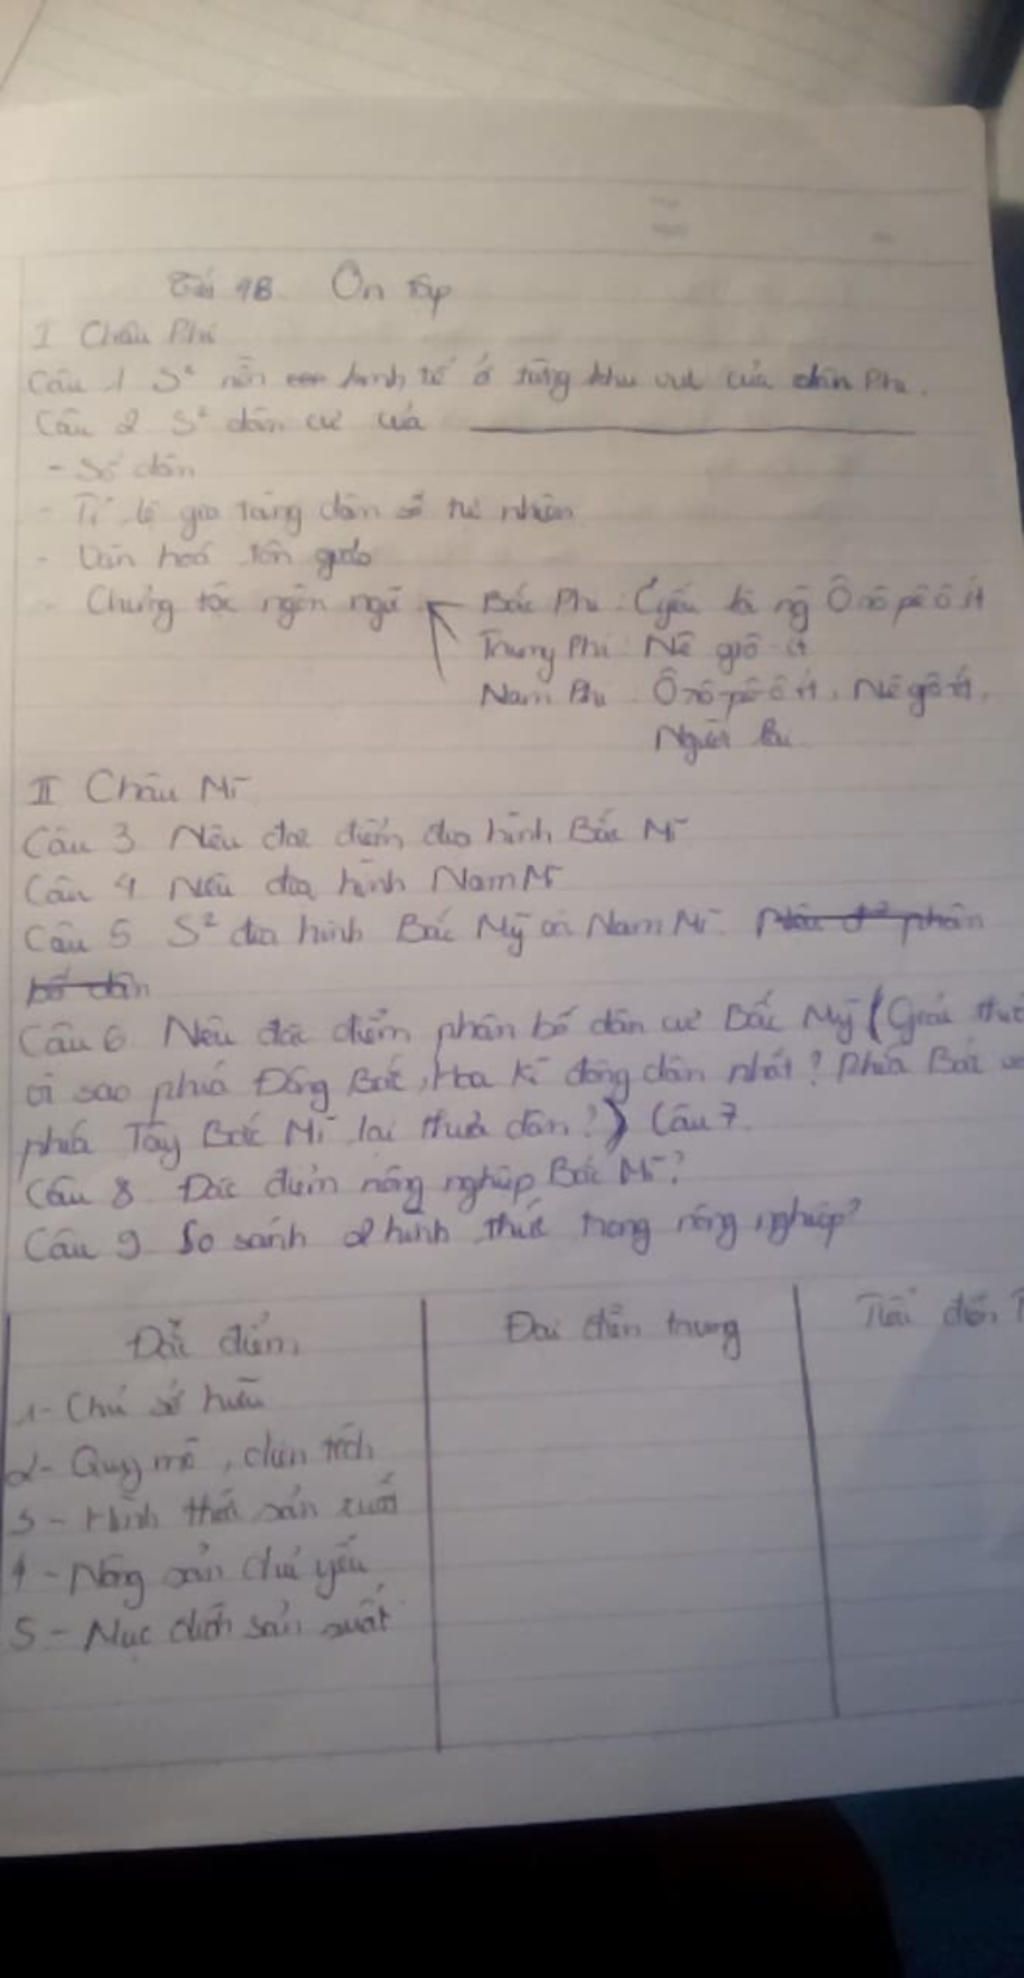 Tiết 48. Ôn tập
I Châu Phi
Câu 1 S² nền kinh tế ở từng khu vực của châu Phi.
Câu 2 S² dân cư của
- Số dân
- Tỉ lệ gia tăng dân số tự nhiên
- Văn hoá tôn giáo
- Chủng tộc ngôn ngữ
Bắc Phi:
Ơrôpêôit
Trung Phi: Nê grô it
Nam Phi: Ơrôpêôit, Nêgrôit,
Người lai
II Châu Mĩ
Câu 3 Nêu đặc điểm địa hình Bắc Mĩ
Câu 4 Nêu địa hình Nam Mĩ
Câu 5 S² địa hình Bắc Mỹ và Nam Mĩ. phân
bố dân
Câu 6 Nêu đặc điểm phân bố dân cư Bắc Mỹ (Giải thích
vì sao phía Đông Bắc, Hoa Kì đông dân nhất? Phía Bắc và
phía Tây Bắc Mĩ lại thưa dân?) Câu 7.
Câu 8 Đặc điểm nông nghiệp Bắc Mĩ?
Câu 9 So sánh 2 hình thức trong nông nghiệp?
Đặc điểm Đại điền trang Tiểu điền
1- Chủ sở hữu
2- Quy mô, diện tích
3- Hình thức sản xuất
4- Nông sản chủ yếu
5- Mục đích sản xuất